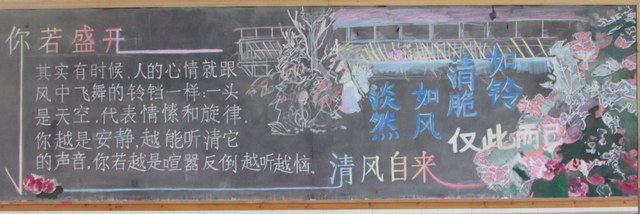 你若盛开
其实有时候,人的心情就跟
风中飞舞的铃铛一样:一头
是天空,代表情愫和旋律.
你越是安静,越能听清它
的声音,你若越是喧嚣反倒越听越恼.
清风自来
淡然
如风
清脆
如铃
仅此而已